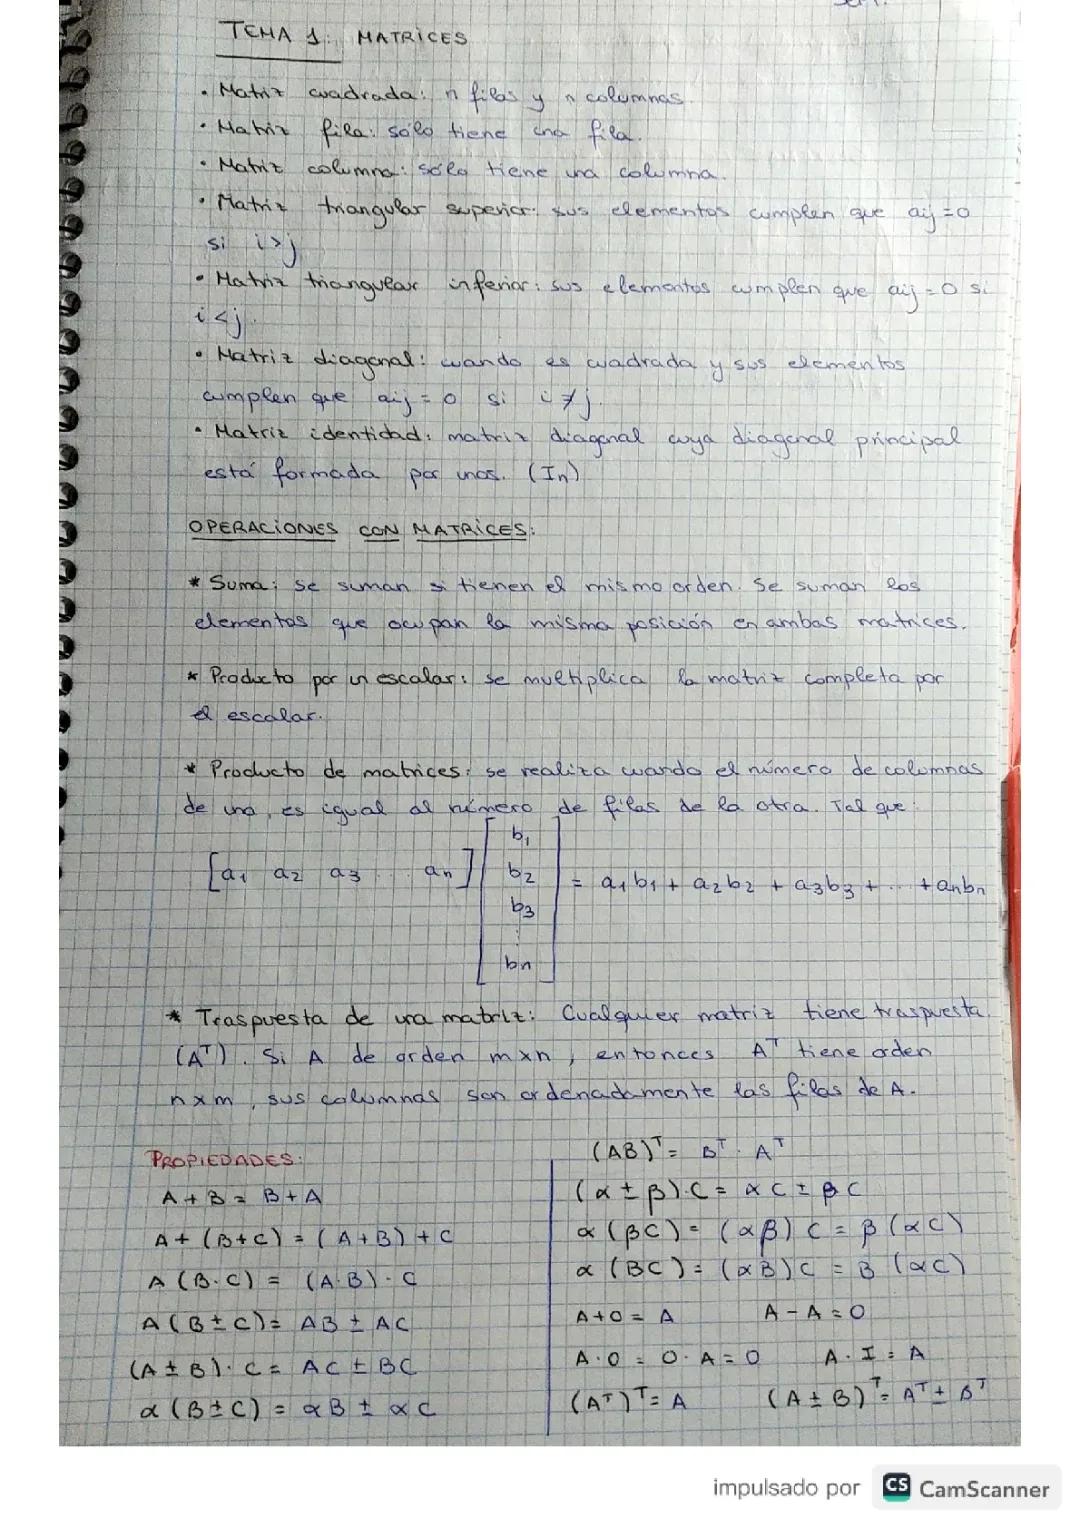 TEMA 1: MATRICES
• Matriz cuadrada: n filas y n columnas.
• Matriz fila: sólo tiene una fila.
• Matriz columna: sólo tiene una columna.
• Matriz triangular superior: sus elementos cumplen que aij = 0
si i>j
• Matriz triangular inferior: sus elementos cumplen que aij = 0 si
i<j.
• Matriz diagonal: cuando es cuadrada y sus elementos
cumplen que aij = 0 si i ≠ j.
• Matriz identidad: matriz diagonal cuya diagonal principal
está formada por unos. (In)
OPERACIONES CON MATRICES:
* Suma: se suman si tienen el mismo orden. Se suman los
elementos que ocupan la misma posición en ambas matrices.
* Producto por un escalar: se multiplica la matriz completa por
el escalar.
* Producto de matrices: se realiza cuando el número de columnas
de una, es igual al número de filas de la otra. Tal que:
[a1 a2 a3 ... an] [b1 b2 b3 ⋮ bn] = a1b1 + a2b2 + a3b3 + ... + anbn
* Traspuesta de una matriz: Cualquier matriz tiene traspuesta.
(Aᵀ). Si A de orden mxn, entonces Aᵀ tiene orden
nxm, sus columnas son ordenadamente las filas de A.
PROPIEDADES:
A + B = B + A
A + (B+C) = (A+B) + C
A (B·C) = (A·B)·C
A (B ± C) = AB ± AC
(A ± B)·C = AC ± BC
α (B ± C) = αB ± αC
(AB)ᵀ = Bᵀ · Aᵀ
(α ± β)·C = αC ± βC
α (βC) = (αβ) C = β (αC)
α (BC) = (αB) C = B (αC)
A+0 = A A - A = 0
A·0 = 0·A = 0 A·I = A
(Aᵀ)ᵀ = A (A ± B)ᵀ = Aᵀ ± Bᵀ
impulsado por CS CamScanner